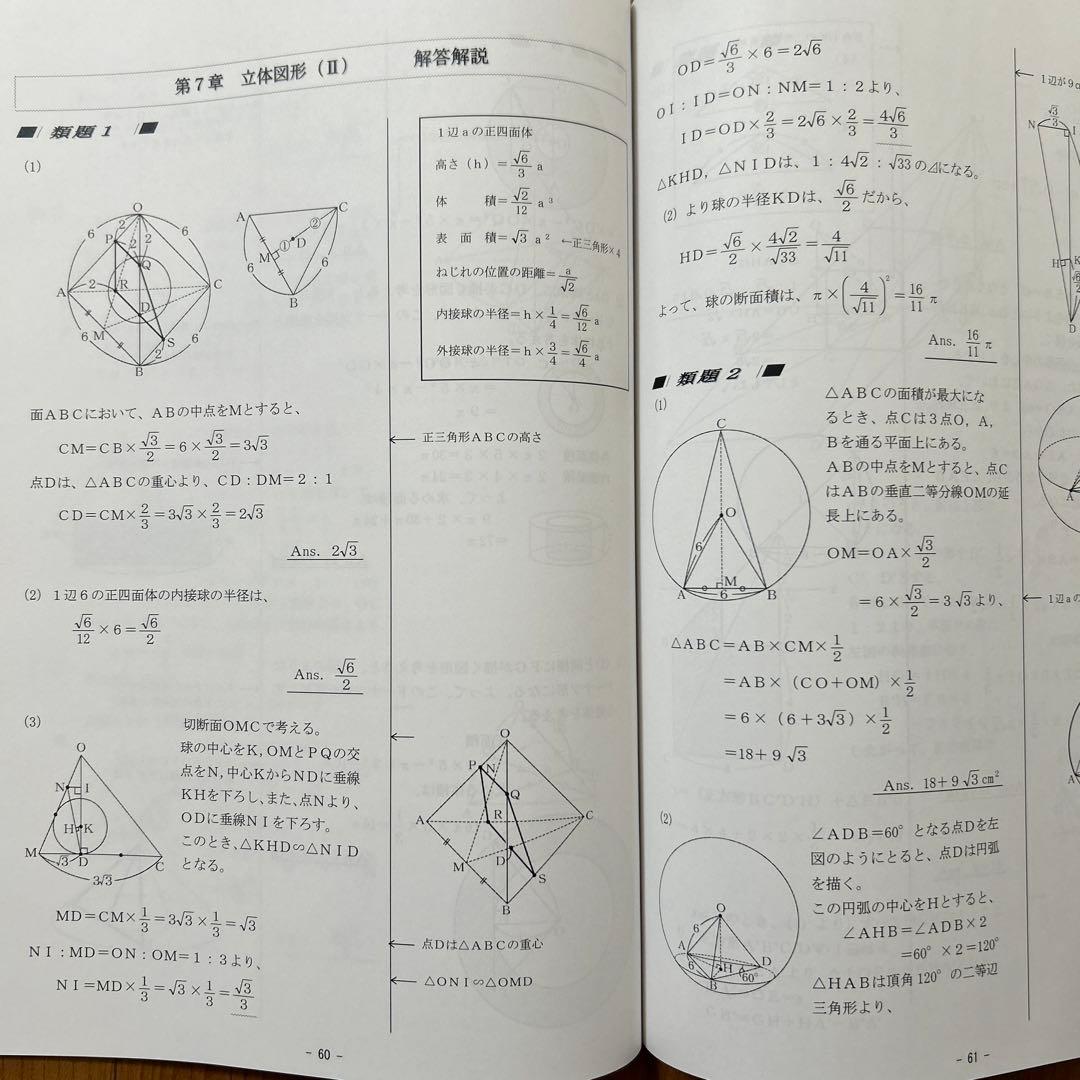 第7章 立体図形(Ⅱ) 解答解説
類題1
(1)
O
6
2
2
6
P
2
2
Q
A
2
R
C
D
M
S
6
2
6
B
A
C
②
①
D
M
6
6
B
1辺aの正四面体
高さ(h)=√6/3 a
体 積=√2/12 a³
表 面 積=√3 a² ←正三角形×4
ねじれの位置の距離=a/√2
内接球の半径=h×1/4=√6/12 a
外接球の半径=h×3/4=√6/4 a
面ABCにおいて、ABの中点をMとすると、
CM=CB×√3/2=6×√3/2=3√3
← 正三角形ABCの高さ
点Dは、△ABCの重心より、CD:DM=2:1
CD=CM×2/3=3√3×2/3=2√3
Ans. 2√3
(2) 1辺6の正四面体の内接球の半径は、
√6/12×6=√6/2
Ans. √6/2
(3)
切断面OMCで考える。
球の中心をK,OMとPQの交
点をN,中心KからNDに垂線
KHを下ろし、また、点Nより、
ODに垂線NIを下ろす。
このとき、△KHD∽△NID
となる。
O
N
I
H
K
M
√3
D
C
3√3
O
P
N
Q
R
C
A
M
D
S
B
MD=CM×1/3=3√3×1/3=√3
← 点Dは△ABCの重心
NI:MD=ON:OM=1:3より、
← △ONI∽△OMD
NI=MD×1/3=√3×1/3=√3/3
- 60 -
OD=√6/3×6=2√6
OI:ID=ON:NM=1:2より、
ID=OD×2/3=2√6×2/3=4√6/3
△KHD,△NIDは、1:4√2:√33の⊿になる。
(2)より球の半径KDは、√6/2だから、
HD=√6/2×4√2/√33=4/√11
よって、球の断面積は、π×(4/√11)²=16/11 π
Ans. 16/11 π
類題2
(1)
C
O
6
M
A
6
B
△ABCの面積が最大にな
るとき、点Cは3点O,A,
Bを通る平面上にある。
ABの中点をMとすると、点C
はABの垂直二等分線OMの延
長上にある。
OM=OA×√3/2
=6×√3/2=3√3より、
△ABC=AB×CM×1/2
=AB×(CO+OM)×1/2
=6×(6+3√3)×1/2
=18+9√3
Ans. 18+9√3cm²
(2)
O
6
A
6
H
D
B
60°
∠ADB=60°となる点Dを左
図のようにとると、点Dは円弧
を描く。
この円弧の中心をHとすると、
∠AHB=∠ADB×2
=60°×2=120°
△HABは頂角120°の二等辺
三角形より、
- 61 -
← 1辺が9c
√3/3
N
I
H
K
D
← 1辺aの